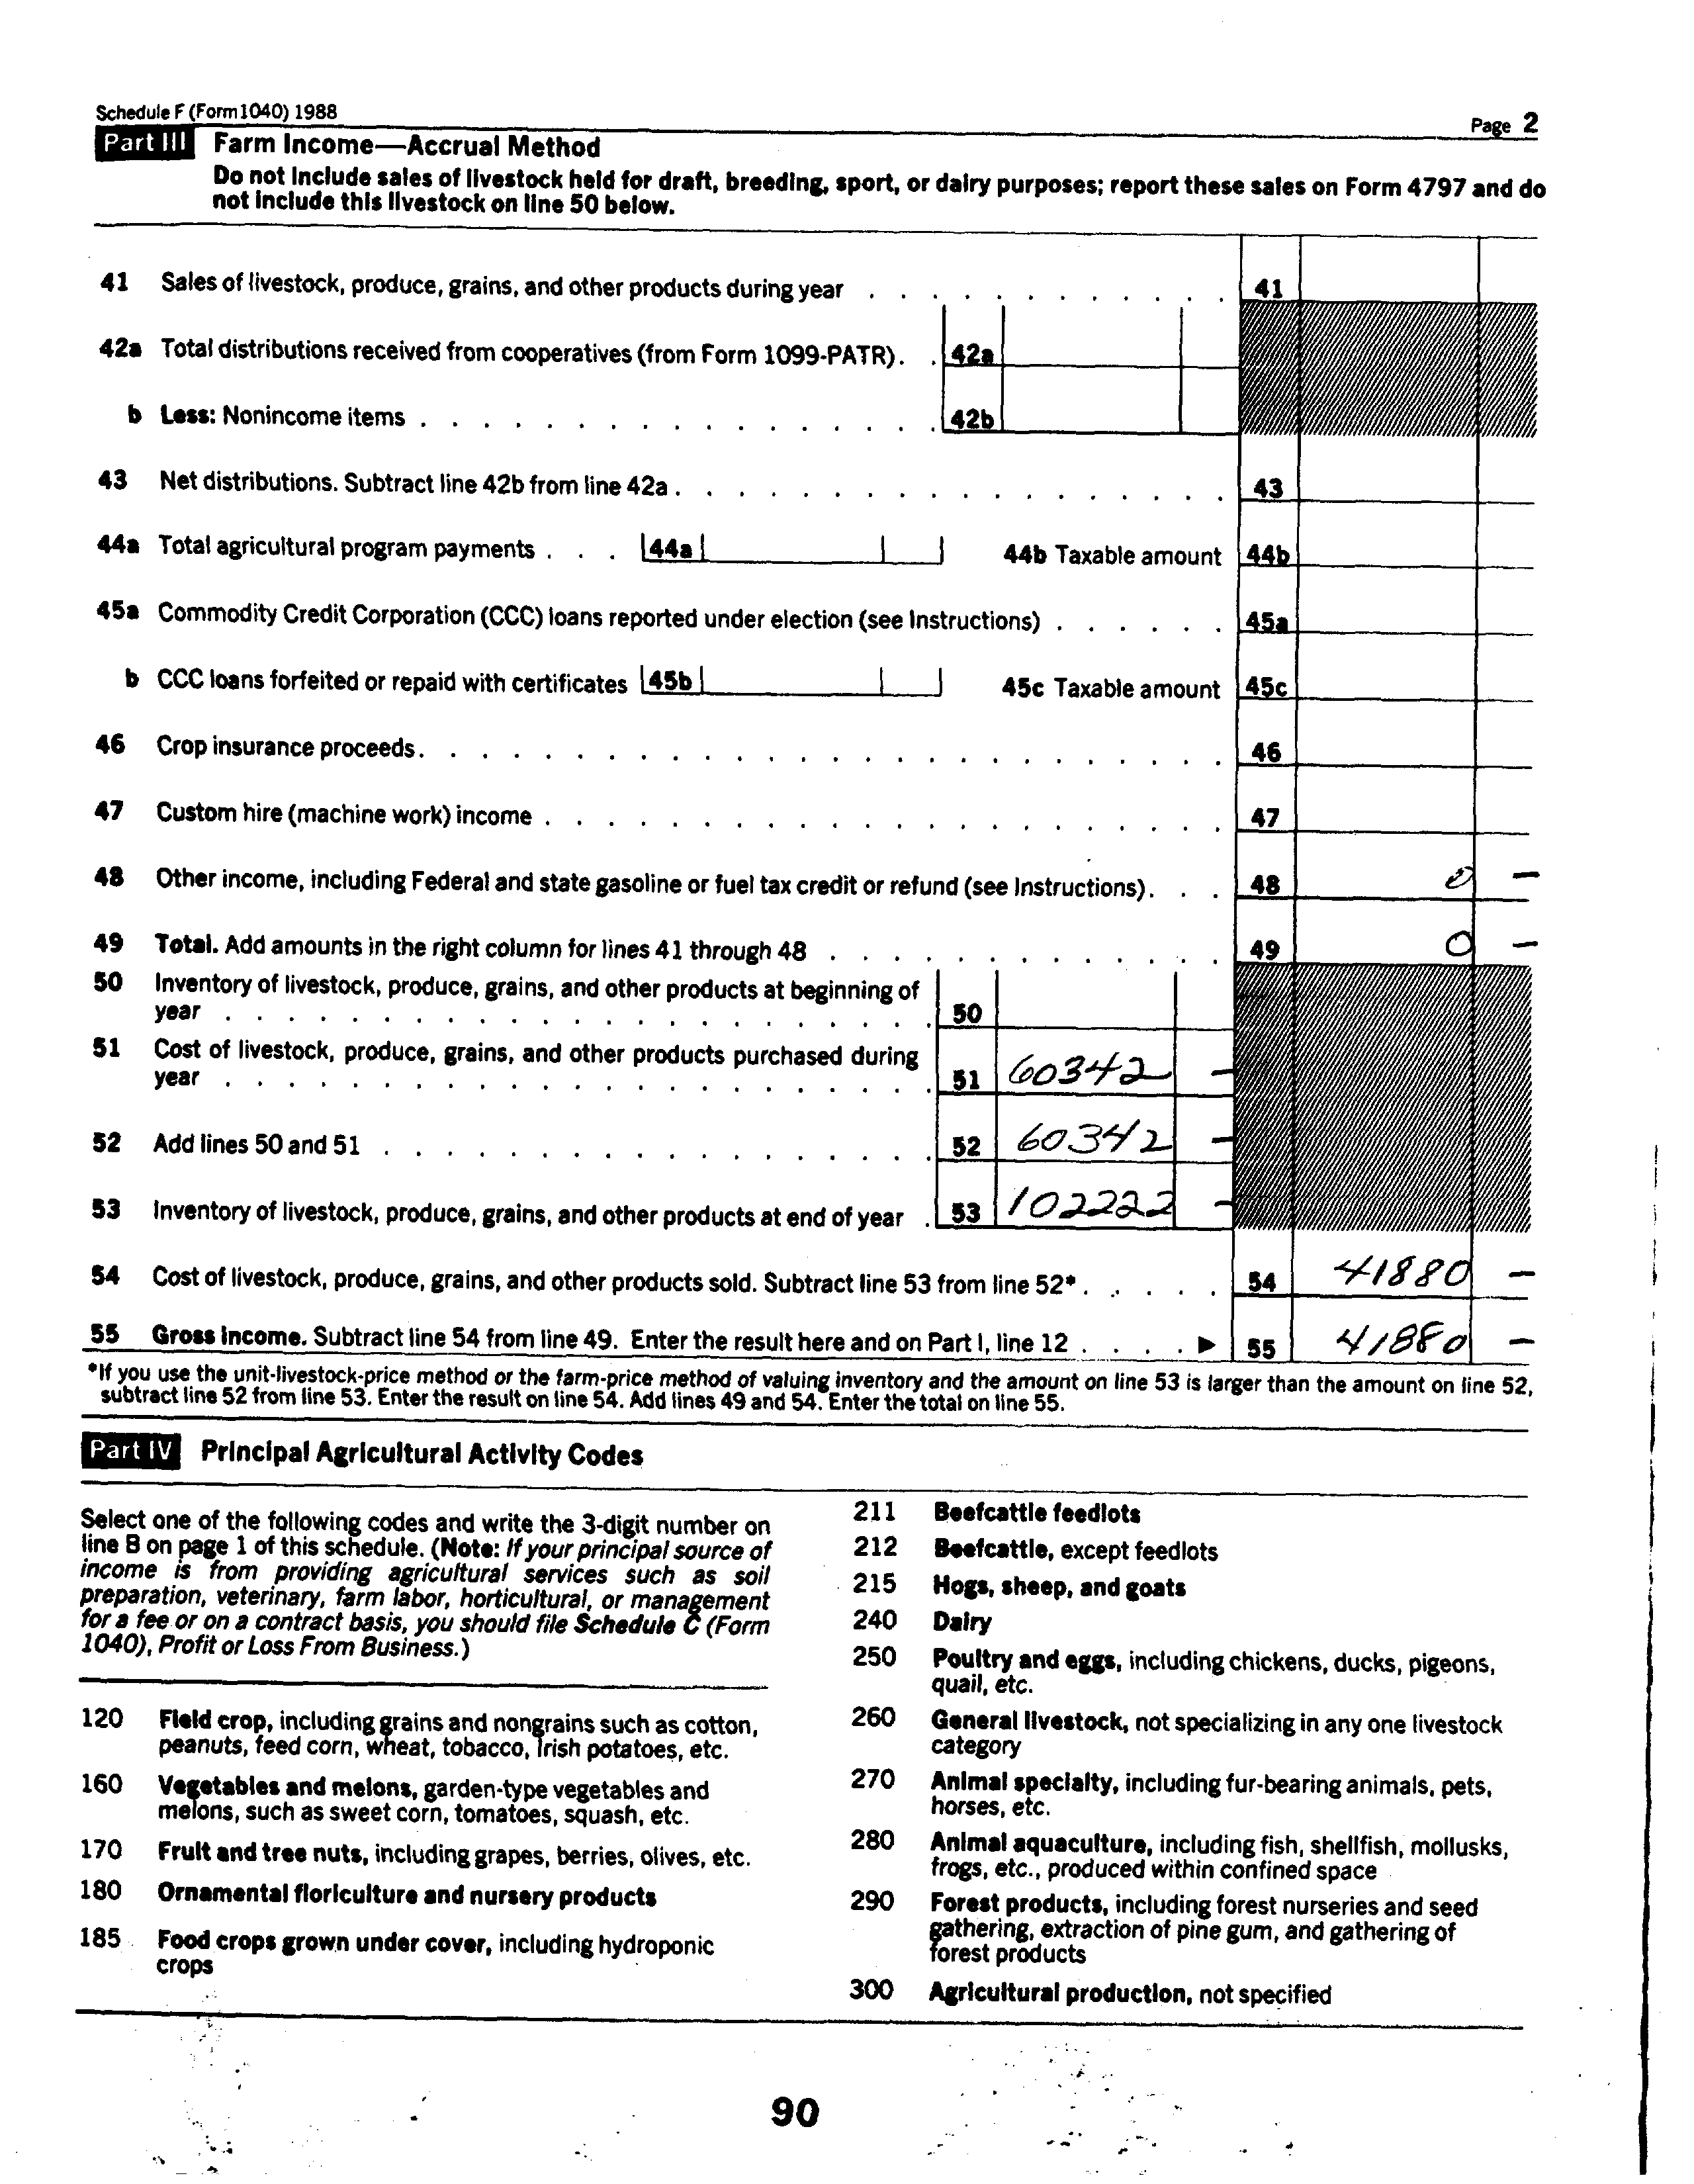 Schedule F (Form 1040) 1988
Page 2
Part III Farm Income—Accrual Method
Do not include sales of livestock held for draft, breeding, sport, or dairy purposes; report these sales on Form 4797 and do
not include this livestock on line 50 below.
41 Sales of livestock, produce, grains, and other products during year . . . . . . . . . . . . 41
42a Total distributions received from cooperatives (from Form 1099-PATR). . 42a
b Less: Nonincome items . . . . . . . . . . . . . . . . . 42b
43 Net distributions. Subtract line 42b from line 42a . . . . . . . . . . . . . . . . . . 43
44a Total agricultural program payments . . . 44a 44b Taxable amount 44b
45a Commodity Credit Corporation (CCC) loans reported under election (see Instructions) . . . . . . 45a
b CCC loans forfeited or repaid with certificates 45b 45c Taxable amount 45c
46 Crop insurance proceeds . . . . . . . . . . . . . . . . . . . . . . . . . . 46
47 Custom hire (machine work) income . . . . . . . . . . . . . . . . . . . . . . 47
48 Other income, including Federal and state gasoline or fuel tax credit or refund (see Instructions) . . . 48 0 –
49 Total. Add amounts in the right column for lines 41 through 48 . . . . . . . . . . . . . 49 0 –
50 Inventory of livestock, produce, grains, and other products at beginning of
year . . . . . . . . . . . . . . . . . . . . . . . 50
51 Cost of livestock, produce, grains, and other products purchased during
year . . . . . . . . . . . . . . . . . . . . . . . 51 60342 –
52 Add lines 50 and 51 . . . . . . . . . . . . . . . . . . 52 60342 –
53 Inventory of livestock, produce, grains, and other products at end of year . 53 102222 –
54 Cost of livestock, produce, grains, and other products sold. Subtract line 53 from line 52* . . . . . 54 41880 –
55 Gross income. Subtract line 54 from line 49. Enter the result here and on Part I, line 12 . . . . ▶ 55 41880 –
*If you use the unit-livestock-price method or the farm-price method of valuing inventory and the amount on line 53 is larger than the amount on line 52,
subtract line 52 from line 53. Enter the result on line 54. Add lines 49 and 54. Enter the total on line 55.
Part IV Principal Agricultural Activity Codes
Select one of the following codes and write the 3-digit number on
line B on page 1 of this schedule. (Note: If your principal source of
income is from providing agricultural services such as soil
preparation, veterinary, farm labor, horticultural, or management
for a fee or on a contract basis, you should file Schedule C (Form
1040), Profit or Loss From Business.)
120 Field crop, including grains and nongrains such as cotton,
peanuts, feed corn, wheat, tobacco, Irish potatoes, etc.
160 Vegetables and melons, garden-type vegetables and
melons, such as sweet corn, tomatoes, squash, etc.
170 Fruit and tree nuts, including grapes, berries, olives, etc.
180 Ornamental floriculture and nursery products
185 Food crops grown under cover, including hydroponic
crops
211 Beefcattle feedlots
212 Beefcattle, except feedlots
215 Hogs, sheep, and goats
240 Dairy
250 Poultry and eggs, including chickens, ducks, pigeons,
quail, etc.
260 General livestock, not specializing in any one livestock
category
270 Animal specialty, including fur-bearing animals, pets,
horses, etc.
280 Animal aquaculture, including fish, shellfish, mollusks,
frogs, etc., produced within confined space
290 Forest products, including forest nurseries and seed
gathering, extraction of pine gum, and gathering of
forest products
300 Agricultural production, not specified
90